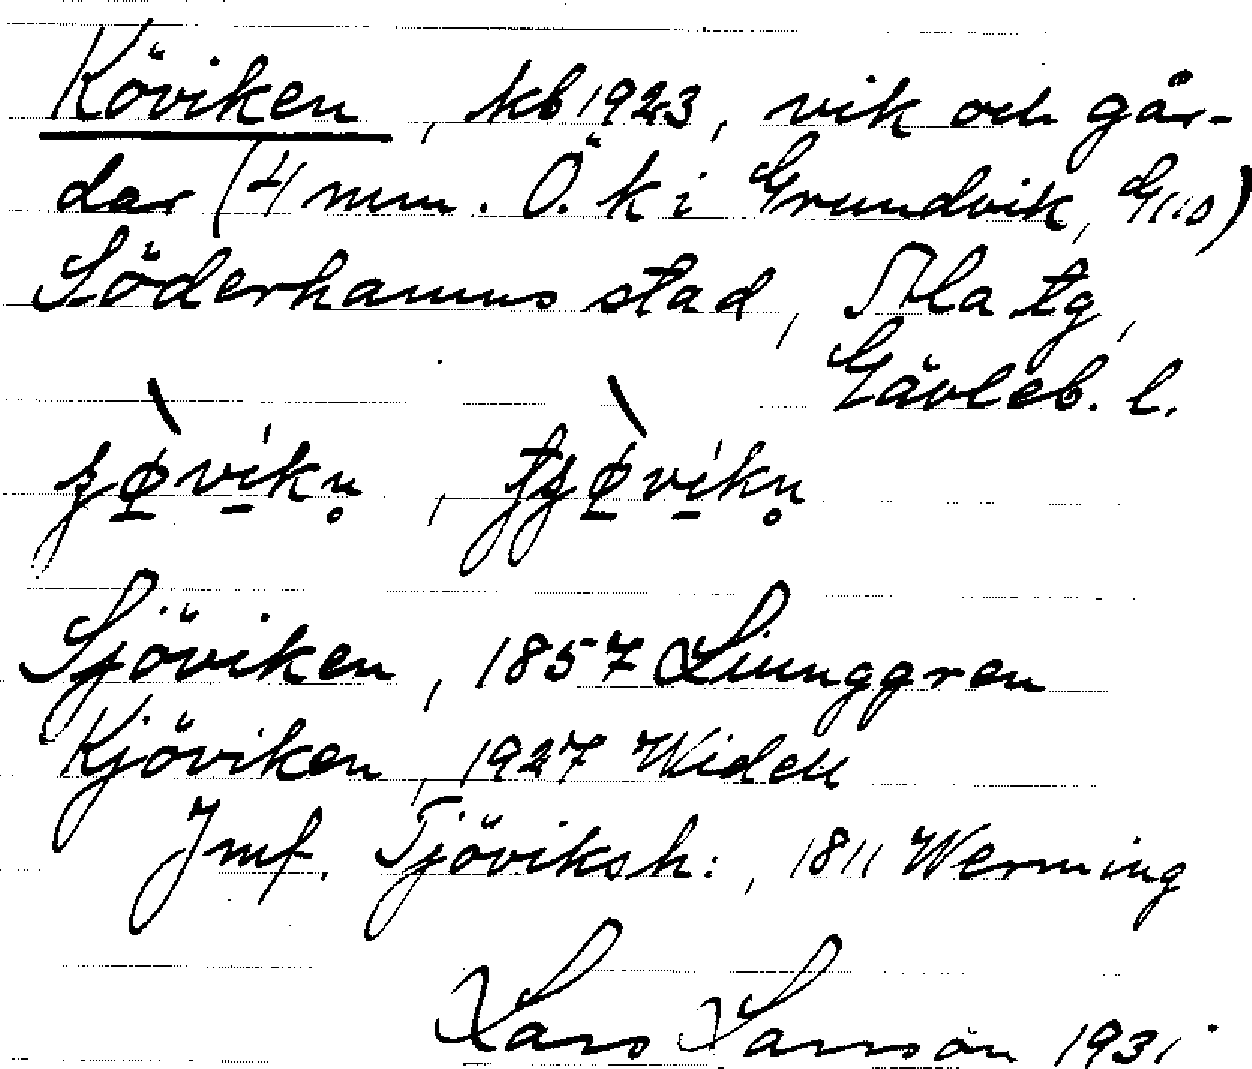 Köviken, kb 1923, vik och går-
dar (4 mm. Ö. k i Grundvik, G110)
Söderhamns stad, Ala tg,
Gävleb. l.
Sjöviken, 1857 Ljunggren
Kjöviken, 1927 Widell
Jmf. Tjöviksh:, 1811 Werming
Lars Larsson 1931